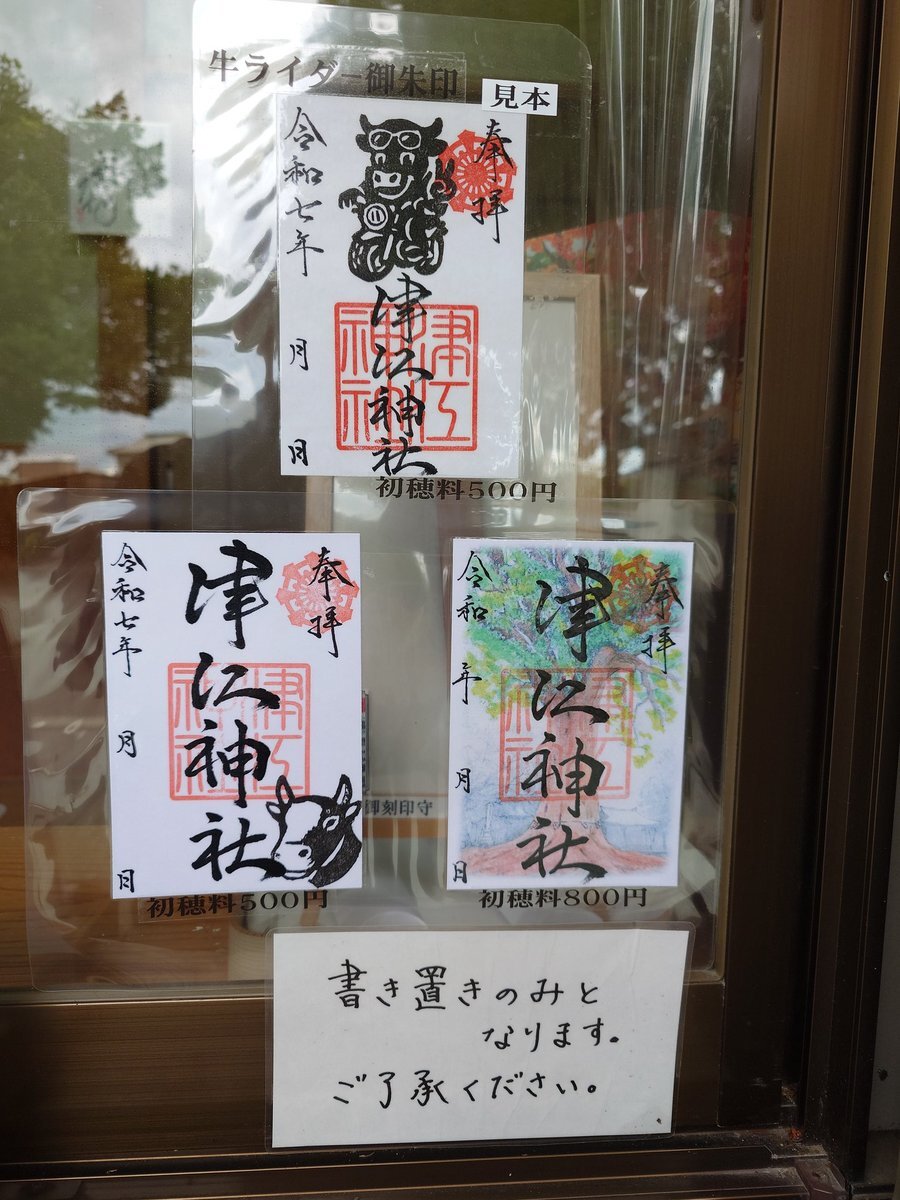 牛ライダー御朱印
見本
奉拝
津江神社
津江神社
令和七年 月 日
初穂料500円
奉拝
津江神社
津江神社
令和七年 月 日
初穂料500円
奉拝
津江神社
津江神社
令和 年 月 日
初穂料800円
御刻印守
書き置きのみと
なります。
ご了承ください。